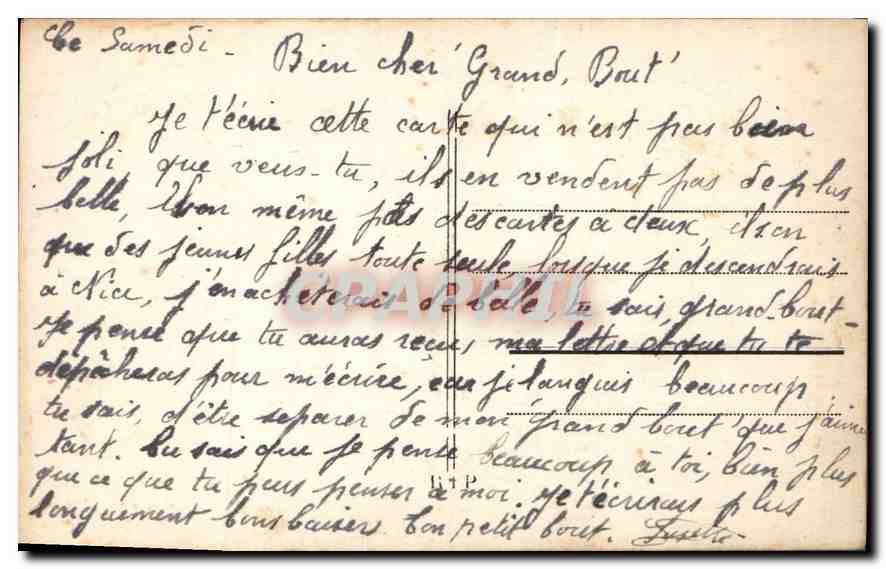 Ce Samedi - Bien cher "Grand, Bout"
Je t'écrie cette carte qui n'est pas bien
joli, que veus-tu, ils en vendent pas de plus
belle, non même pas des cartes à deux, ils on
que des jeunes filles toute seule, losque je descendrais
à Nice, j'en acheterais de belle, tu sais, grand-bout-
Je pense que tu auras reçus ma lettre et que tu te
dépâcheras pour m'écrire, car je languis beaucoup
tu sais, d'être separer de mon "grand bout" que j'aime
tant. Tu sais que je pense beaucoup à toi, bien plus
que ce que tu peus penser à moi. Je t'écrirais plus
longuement bons baisers ton petit bout. Lusette
CPAPHIL